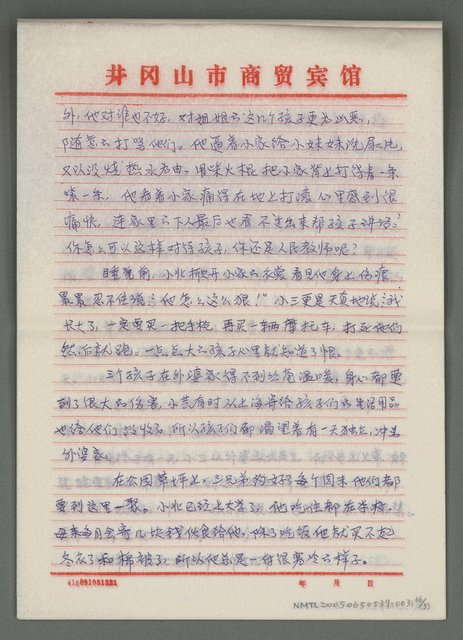 井冈山市商贸宾馆
外，他对谁也不好，对姐姐的这几个孩子更为凶恶，
随意的打骂他们。他逼着小家给小妹妹洗尿片，
又以没烧热水为由，用柴火棍把小家背上打得青一条
紫一条，他看着小家痛得在地上打滚心里感到很
痛快，连家里的下人最后也看不过出来帮孩子讲话：
你怎么可以这样对待孩子，你还是人民教师呢？
睡觉前，小北掀开小家的衣裳看见他身上伤痕
累累忍不住说：“他怎么这么狠！”小三更是天真地说：我
长大了，一定要买一把手枪，再买一辆摩托车，打死他们
然后就跑。一点点大的孩子心里就知道了恨。
三个孩子在外婆家得不到丝毫温暖，身心都受
到了很大的伤害，小芸有时从上海寄给孩子们的生活用品
也给他们没收了，所以孩子们都渴望着有一天独立，冲出
外婆家。
在公园草坪上，三兄弟约好了每个周末他们都
要到这里一聚。小北已经上大学了，他吃住都在学校，
母亲每月会寄几块钱伙食给他，除了吃饭他就买不起
冬衣了和棉被了，所以他总是一付很寒冷的样子。
418091081221
年 月 日
NMTL20050050539-003-16/33